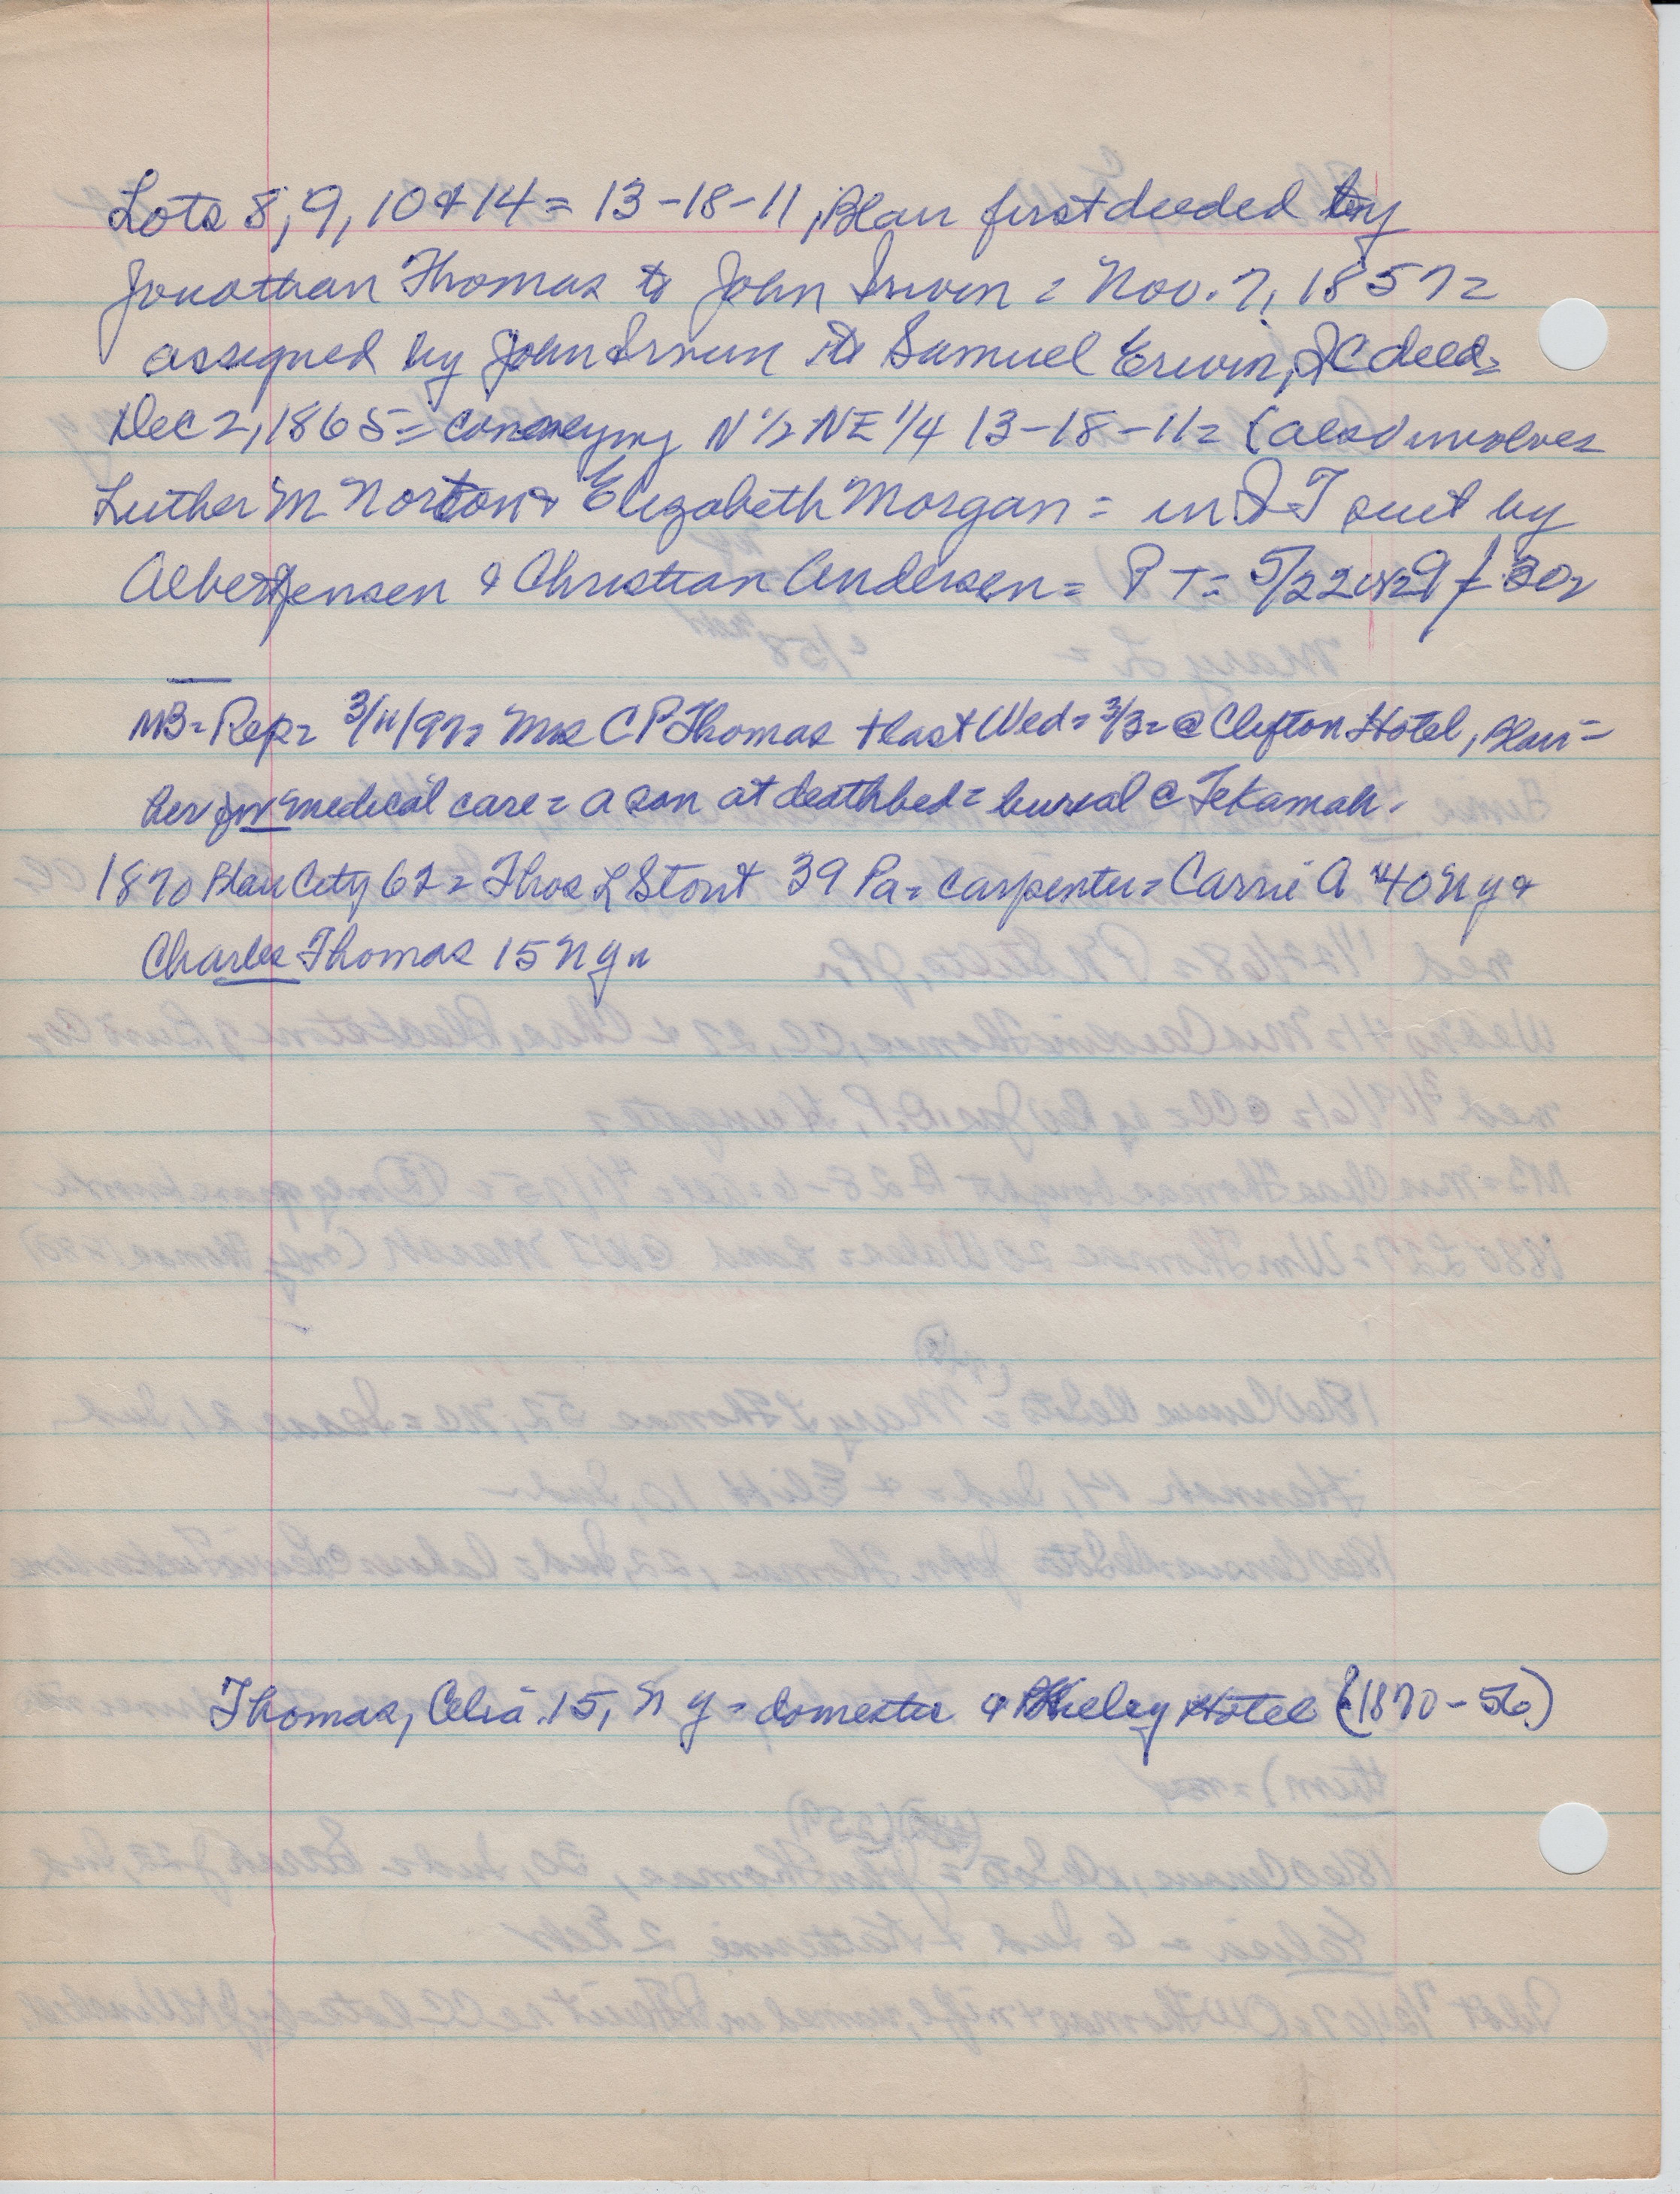 Lots 8, 9, 10 & 14 = 13-18-11, Blair first deeded by
Jonathan Thomas to John Irwin = Nov. 7, 1857 =
assigned by John Irwin to Samuel Erwin, QC deed =
Dec 2, 1865 = conveying N 1/2 NE 1/4 13-18-11 = (also involves
Luther M Norton & Elizabeth Morgan = in QT suit by
Albert Jensen & Christian Andersen = PT = 5/22 & 29
MB = Rep = 3/11/97 = Mrs C P Thomas + last Wed = 3/3 = @ Clifton Hotel, Blair =
her for medical care = a son at deathbed = burial @ Tekamah.
1870 Blair City 62 = Thos L Stout 39 Pa = carpenter = Carrie A 40 N Y &
Charles Thomas 15 N Y =
Thomas, Celia 15, N Y = domestic Hotel (1870-56)